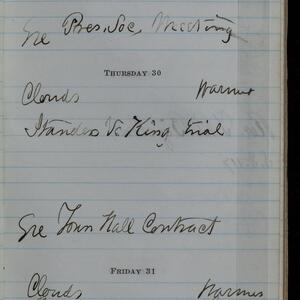 Pres. Soc. Meeting
THURSDAY 30
Clouds Warmer
Vs King trial
Town Hall Contract
FRIDAY 31
Clouds Warmer